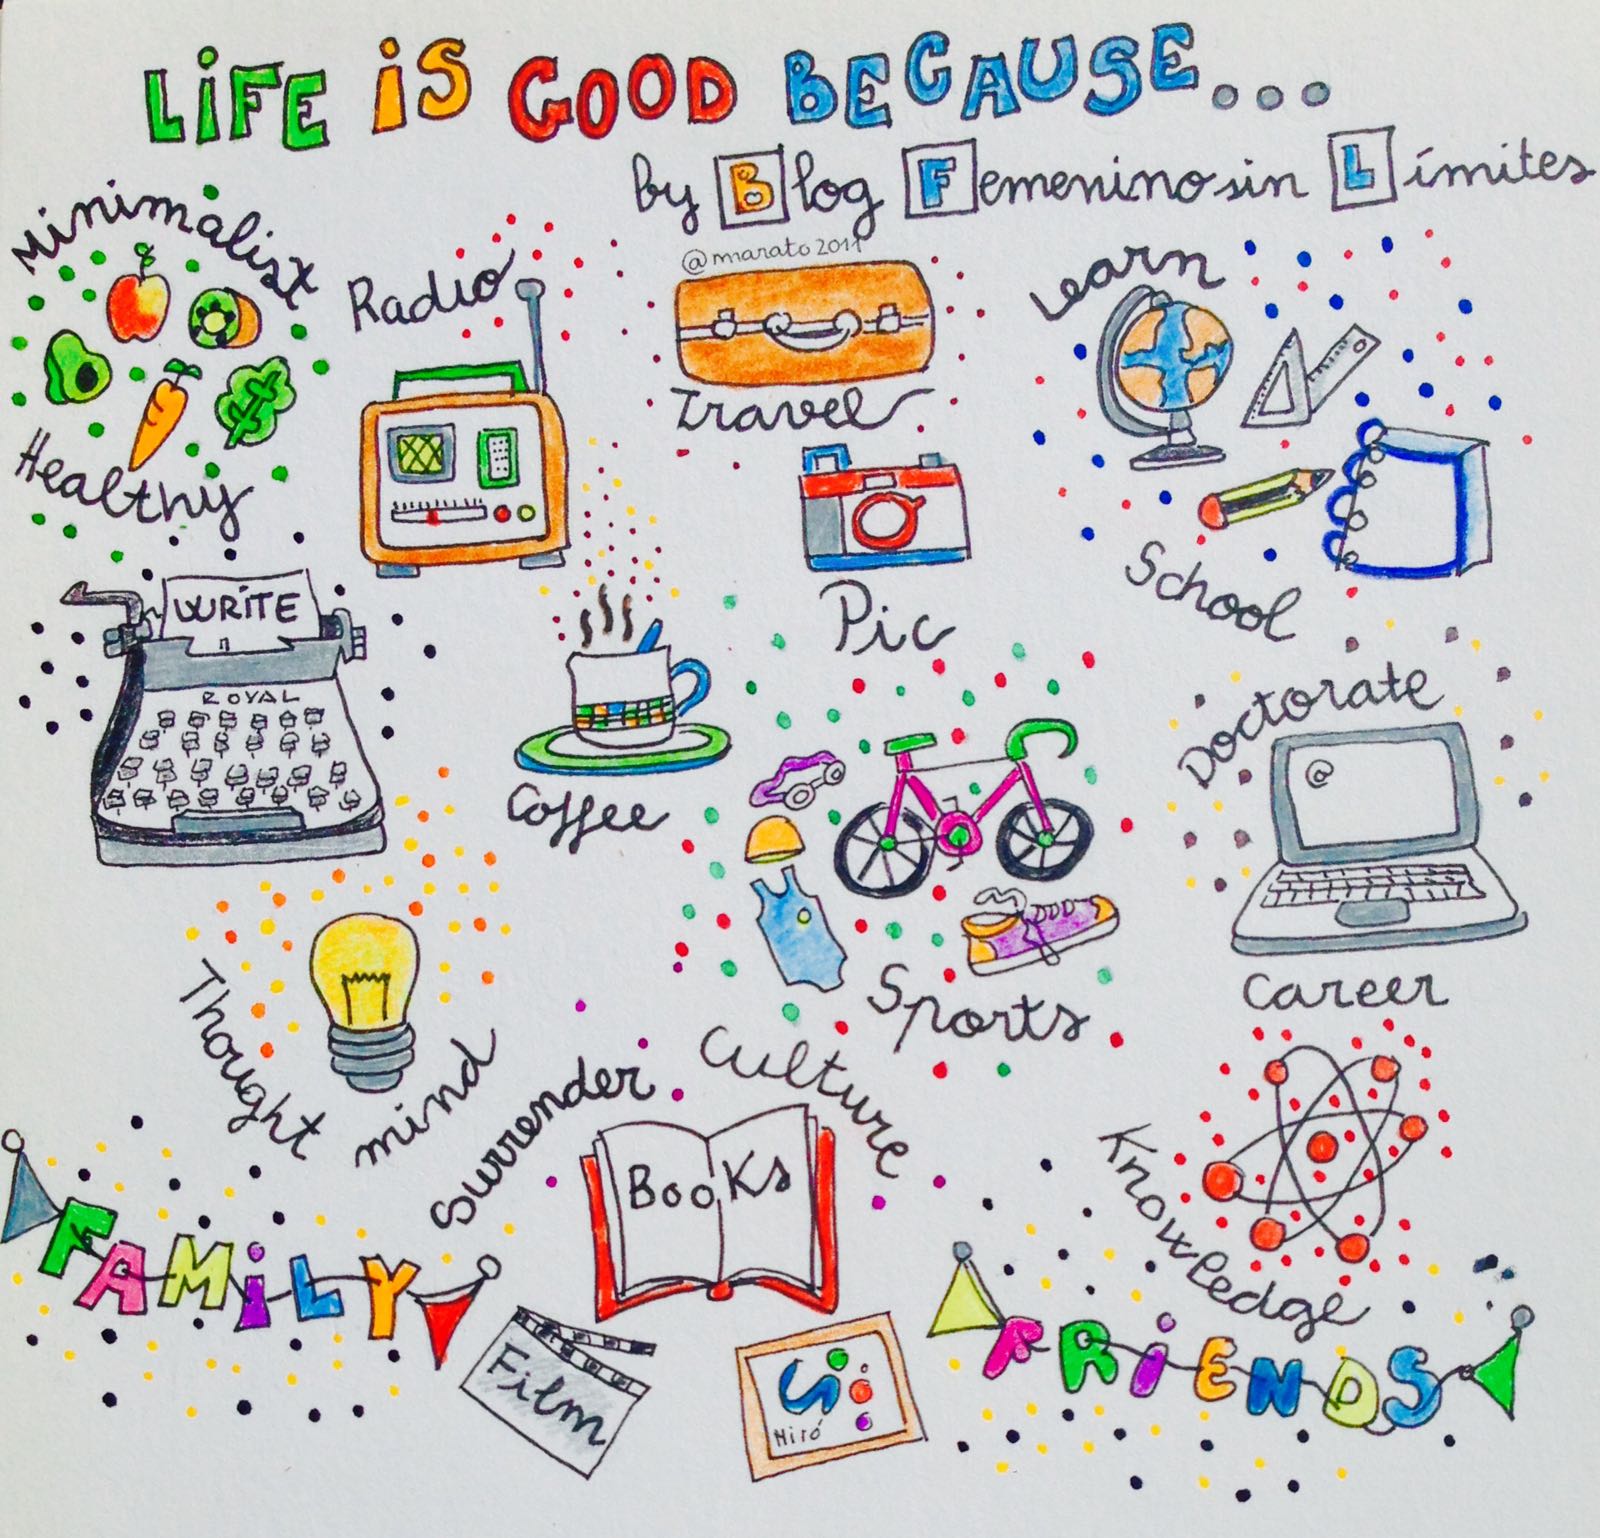 LiFE iS GOOD BECAUSE...
by Blog Femenino sin Límites
@marato2011
Minimalist
Healthy
Radio
Travel
Learn
Pic
School
WRiTE
ROYAL
Coffee
Doctorate
@
Career
Sports
Thought
mind
Surrender
Culture
Books
Knowledge
FAMiLY
Film
Miró
FRiENDS